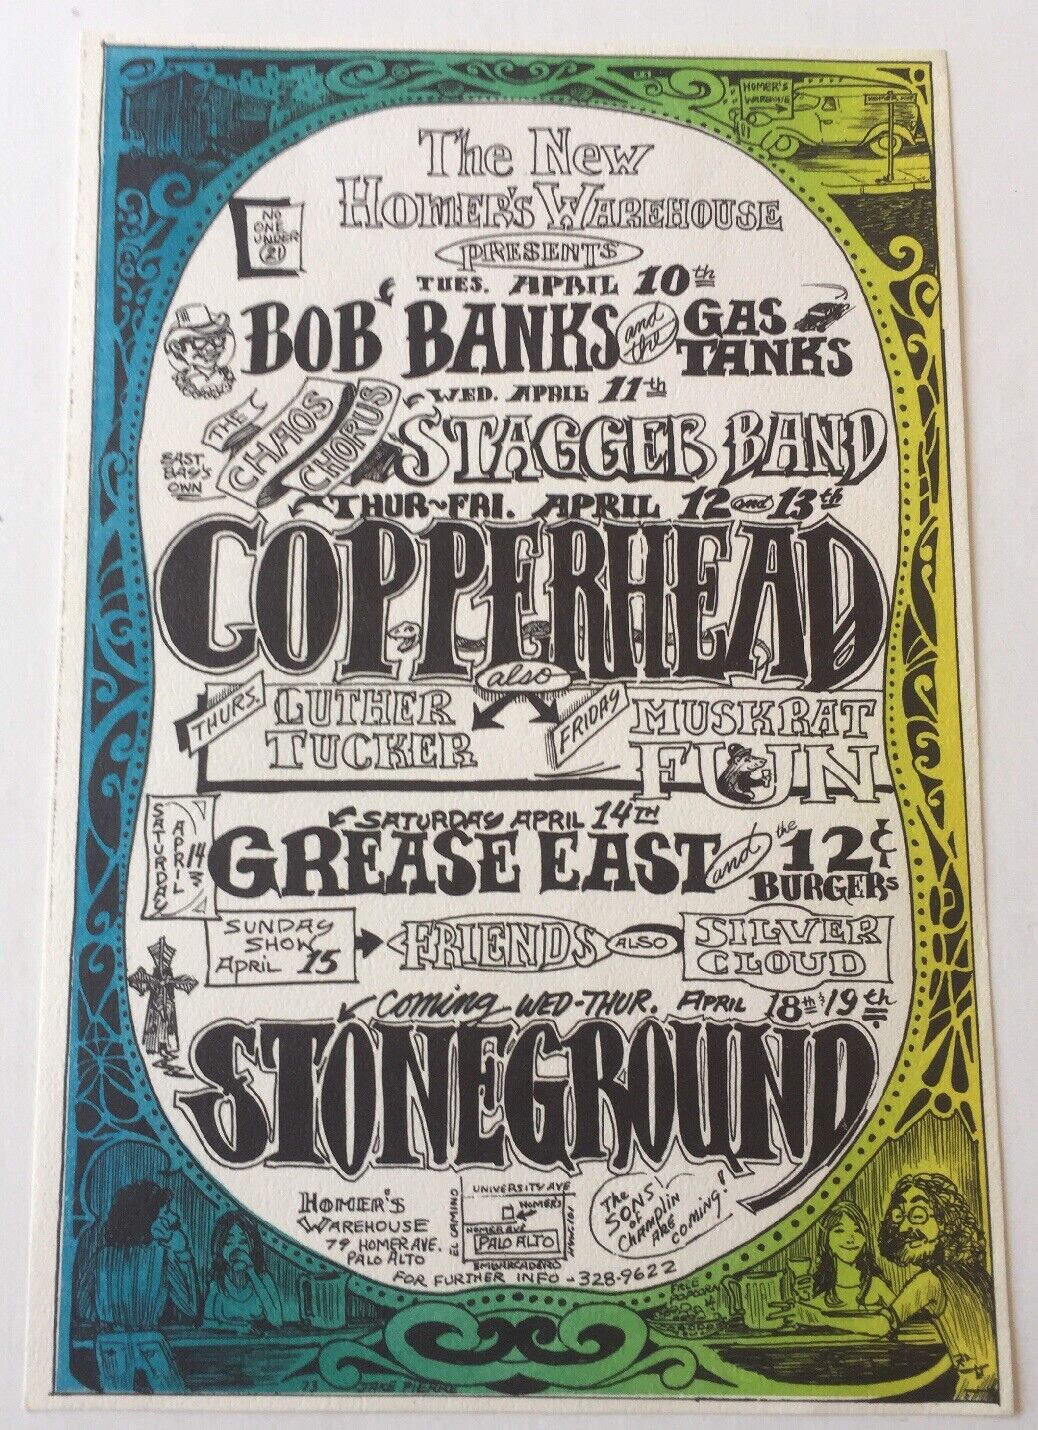 HOMER'S
WAREHOUSE
HOMER AVE
The New
Homer's Warehouse
PRESENTS
NO
ONE
UNDER
21
TUES. APRIL 10th
BOB BANKS and the GAS TANKS
WED. APRIL 11th
THE CHAOS CHORUS
EAST
BAY'S
OWN
STAGGER BAND
THUR~FRI. APRIL 12 and 13th
COPPERHEAD
also
THURS. LUTHER TUCKER
FRIDAY MUSKRAT FUN
SATURDAY APRIL 14TH
SATURDAY
APRIL 14th
GREASE EAST and the 12¢ BURGERS
SUNDAY
SHOW
APRIL 15
FRIENDS ALSO SILVER CLOUD
Coming WED-THUR. APRIL 18th & 19th
STONEGROUND
HOMER'S
WAREHOUSE
79 HOMER AVE.
PALO ALTO
UNIVERSITY AVE
EL CAMINO
HOMER'S
HOMER AVE
PALO ALTO
EMBARCADERO
The
SONS
of
CHAMPLIN
ARE
COMING!
FOR FURTHER INFO - 328-9622
FREE
POPCORN
73 JAKE PIERRE